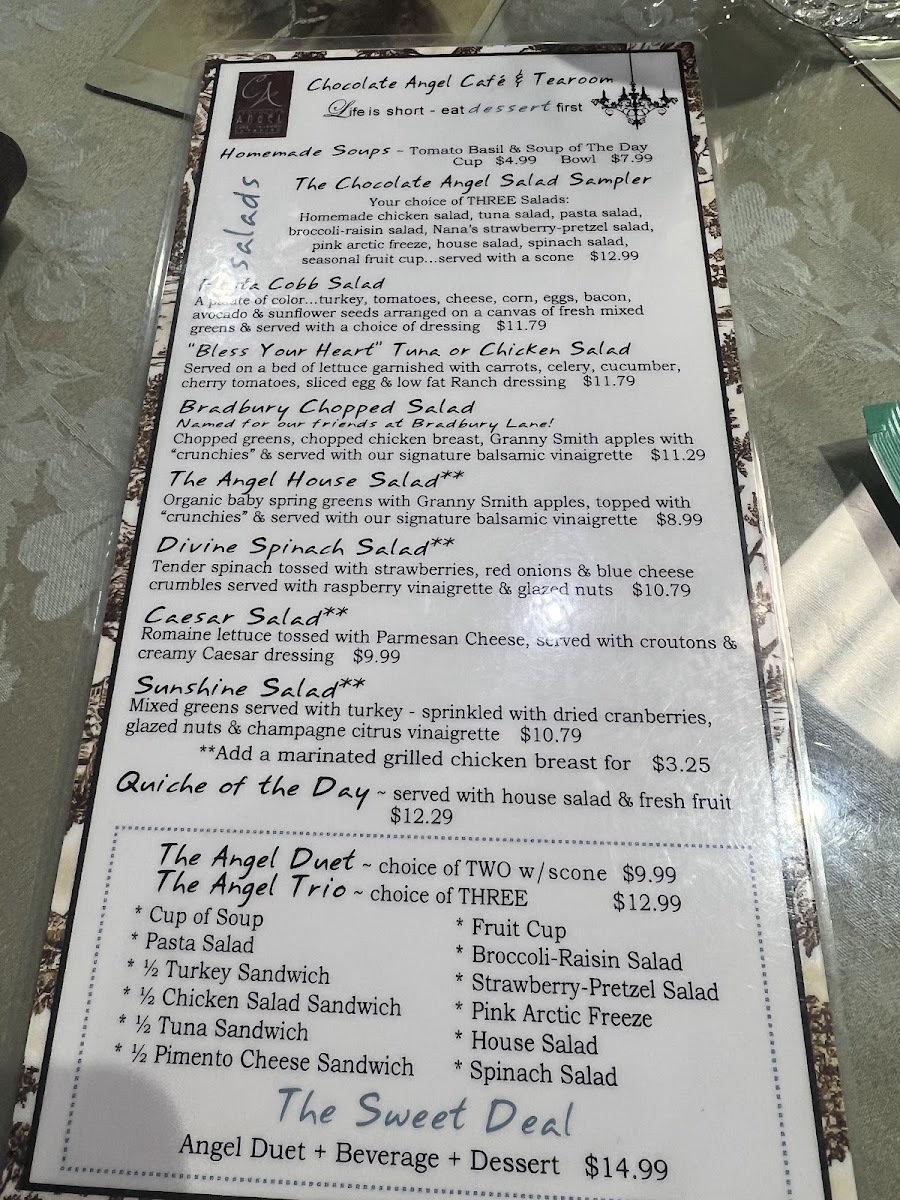 CA
Angel
Chocolate Angel Café & Tearoom
Life is short - eat dessert first
Homemade Soups - Tomato Basil & Soup of The Day
Cup $4.99 Bowl $7.99
salads
The Chocolate Angel Salad Sampler
Your choice of THREE Salads:
Homemade chicken salad, tuna salad, pasta salad,
broccoli-raisin salad, Nana's strawberry-pretzel salad,
pink arctic freeze, house salad, spinach salad,
seasonal fruit cup...served with a scone $12.99
Cobb Salad
A of color...turkey, tomatoes, cheese, corn, eggs, bacon,
avocado & sunflower seeds arranged on a canvas of fresh mixed
greens & served with a choice of dressing $11.79
"Bless Your Heart" Tuna or Chicken Salad
Served on a bed of lettuce garnished with carrots, celery, cucumber,
cherry tomatoes, sliced egg & low fat Ranch dressing $11.79
Bradbury Chopped Salad
Named for our friends at Bradbury Lane!
Chopped greens, chopped chicken breast, Granny Smith apples with
"crunchies" & served with our signature balsamic vinaigrette $11.29
The Angel House Salad**
Organic baby spring greens with Granny Smith apples, topped with
"crunchies" & served with our signature balsamic vinaigrette $8.99
Divine Spinach Salad**
Tender spinach tossed with strawberries, red onions & blue cheese
crumbles served with raspberry vinaigrette & glazed nuts $10.79
Caesar Salad**
Romaine lettuce tossed with Parmesan Cheese, served with croutons &
creamy Caesar dressing $9.99
Sunshine Salad**
Mixed greens served with turkey - sprinkled with dried cranberries,
glazed nuts & champagne citrus vinaigrette $10.79
**Add a marinated grilled chicken breast for $3.25
Quiche of the Day ~ served with house salad & fresh fruit
$12.29
The Angel Duet ~ choice of TWO w/scone $9.99
The Angel Trio ~ choice of THREE $12.99
* Cup of Soup
* Pasta Salad
* ½ Turkey Sandwich
* ½ Chicken Salad Sandwich
* ½ Tuna Sandwich
* ½ Pimento Cheese Sandwich
* Fruit Cup
* Broccoli-Raisin Salad
* Strawberry-Pretzel Salad
* Pink Arctic Freeze
* House Salad
* Spinach Salad
The Sweet Deal
Angel Duet + Beverage + Dessert $14.99